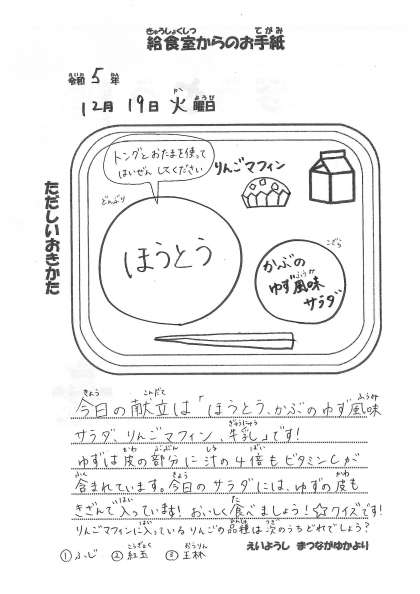 給食室からのお手紙
令和5年
12月19日火曜日
ただしいおきかた
トングとおたまを使って
はいぜんしてください
りんごマフィン
どんぶり
ほうとう
こざら
かぶの
ゆず風味
サラダ
今日の献立は「ほうとう、かぶのゆず風味
サラダ、りんごマフィン、牛乳」です!
ゆずは皮の部分に汁の4倍もビタミンCが
含まれています。今日のサラダには、ゆずの皮も
きざんで入っています!おいしく食べましょう!☆クイズです!
りんごマフィンに入っているりんごの品種は次のうちどれでしょう?
①ふじ ②紅玉 ③王林
えいようし まつながゆかより